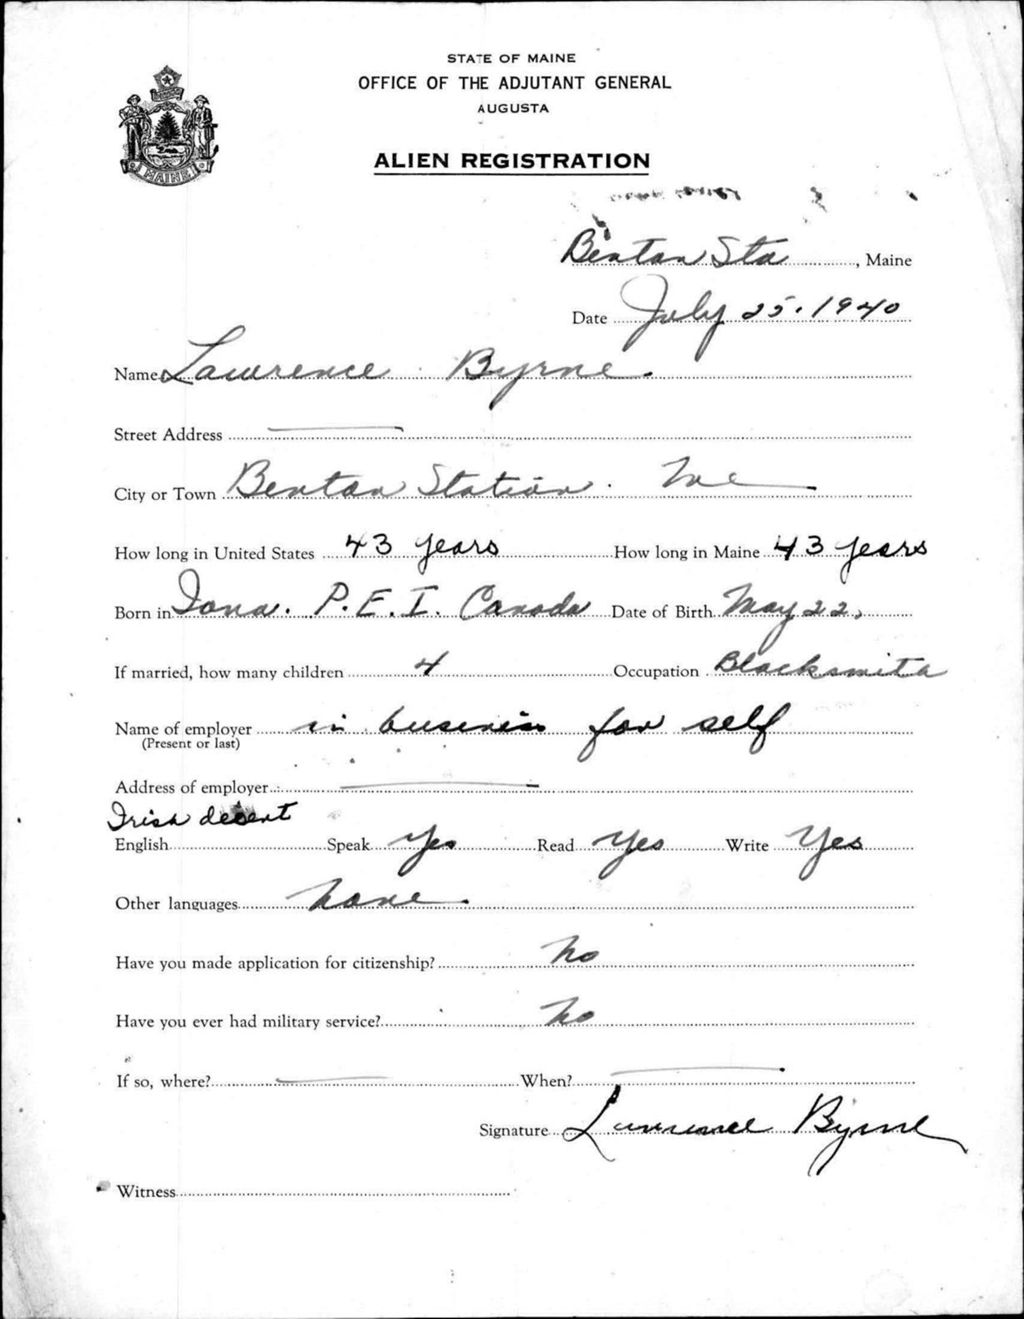 STATE OF MAINE
OFFICE OF THE ADJUTANT GENERAL
AUGUSTA
ALIEN REGISTRATION
MAINE
Benton Sta, Maine
Date July 25, 1940
Name Lawrence Byrne.
Street Address
City or Town Benton Station. Me
How long in United States 43 years How long in Maine 43 years
Born in Iona. P.E.I. Canada Date of Birth May 22,
If married, how many children 4 Occupation Blacksmith
Name of employer in business for self
(Present or last)
Address of employer
Irish decent
English Speak Yes Read Yes Write Yes
Other languages none.
Have you made application for citizenship? No
Have you ever had military service? No
If so, where? When?
Signature Lawrence Byrne
Witness